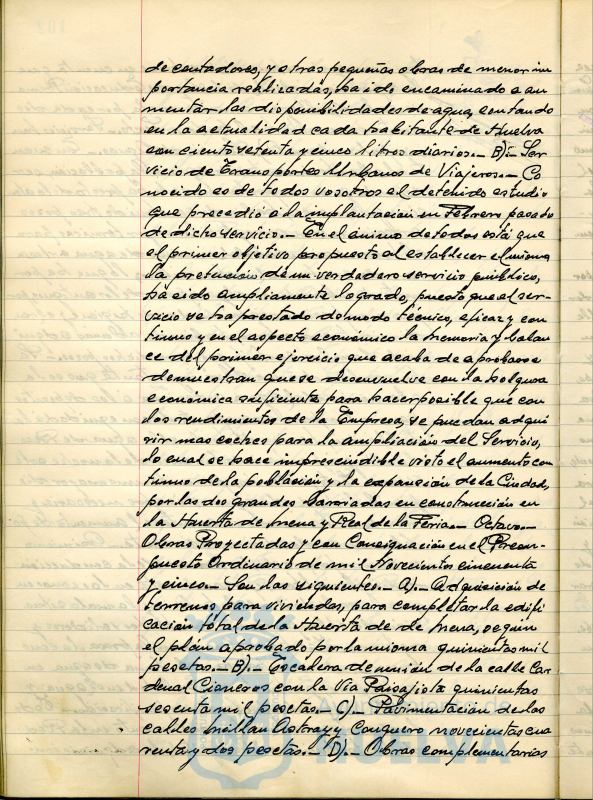 de contadores, y otras pequeñas obras de menor im
portancia realizadas, ha ido encaminado a au
mentar las disponibilidades de agua, contando
en la actualidad cada habitante de Huelva
con ciento setenta y cinco litros diarios.- B).- Ser
vicio de Transportes Urbanos de Viajeros.- Co
nocido es de todos vosotros el detenido estudio
que precedió a la implantación en Febrero pasado
de dicho servicio.- En el ánimo de todos está que
el primer objetivo propuesto al establecer el mismo
la prestación de un verdadero servicio público,
ha sido ampliamente logrado, puesto que el ser-
vicio se ha prestado de modo técnico, eficaz y con
tinuo y en el aspecto económico la Memoria y balan
ce del primer ejercicio que acaba de aprobarse
demuestran que se desenvuelve con la holgura
económica suficiente para hacer posible que con
los rendimientos de la Empresa, se puedan adqui
rir mas coches para la ampliación del Servicio,
lo cual se hace imprescindible visto el aumento con
tinuo de la población y la expansión de la Ciudad,
por las dos grandes barriadas en construcción en
la Huerta de Mena y Real de la Feria.- Octavo.-
Obras Proyectadas y con Consignación en el Presu-
puesto Ordinario de mil Novecientos cincuenta
y cinco.- Son las siguientes.- A).- Adquisición de
terrenos para viviendas, para completar la edifi
cación total de la Huerta de de Mena, según
el plán aprobado por la misma quinientas mil
pesetas.- B).- Escalera de unión de la calle Car
denal Cisneros con la Vía Paisajista quinientas
sesenta mil pesetas.- C).- Pavimentación de las
calles Millan Astray y Conquero novecientas cua
renta y dos pesetas.- D).- Obras complementarias